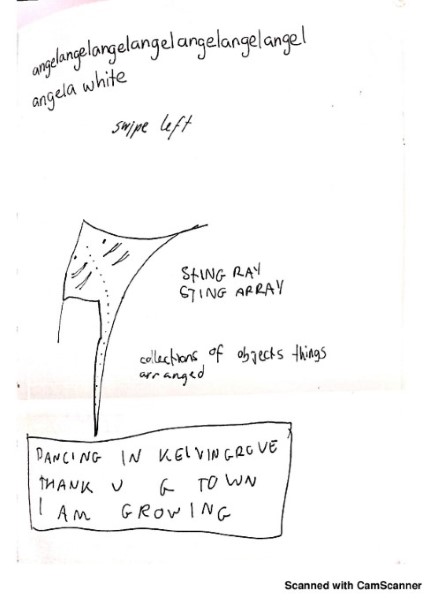 angelangelangelangelangelangelangel
angela white
swipe left
STING RAY
STING ARRAY
collections of objects things
arranged
DANCING IN KELVINGROVE
THANK U G TOWN
I AM GROWING
Scanned with CamScanner